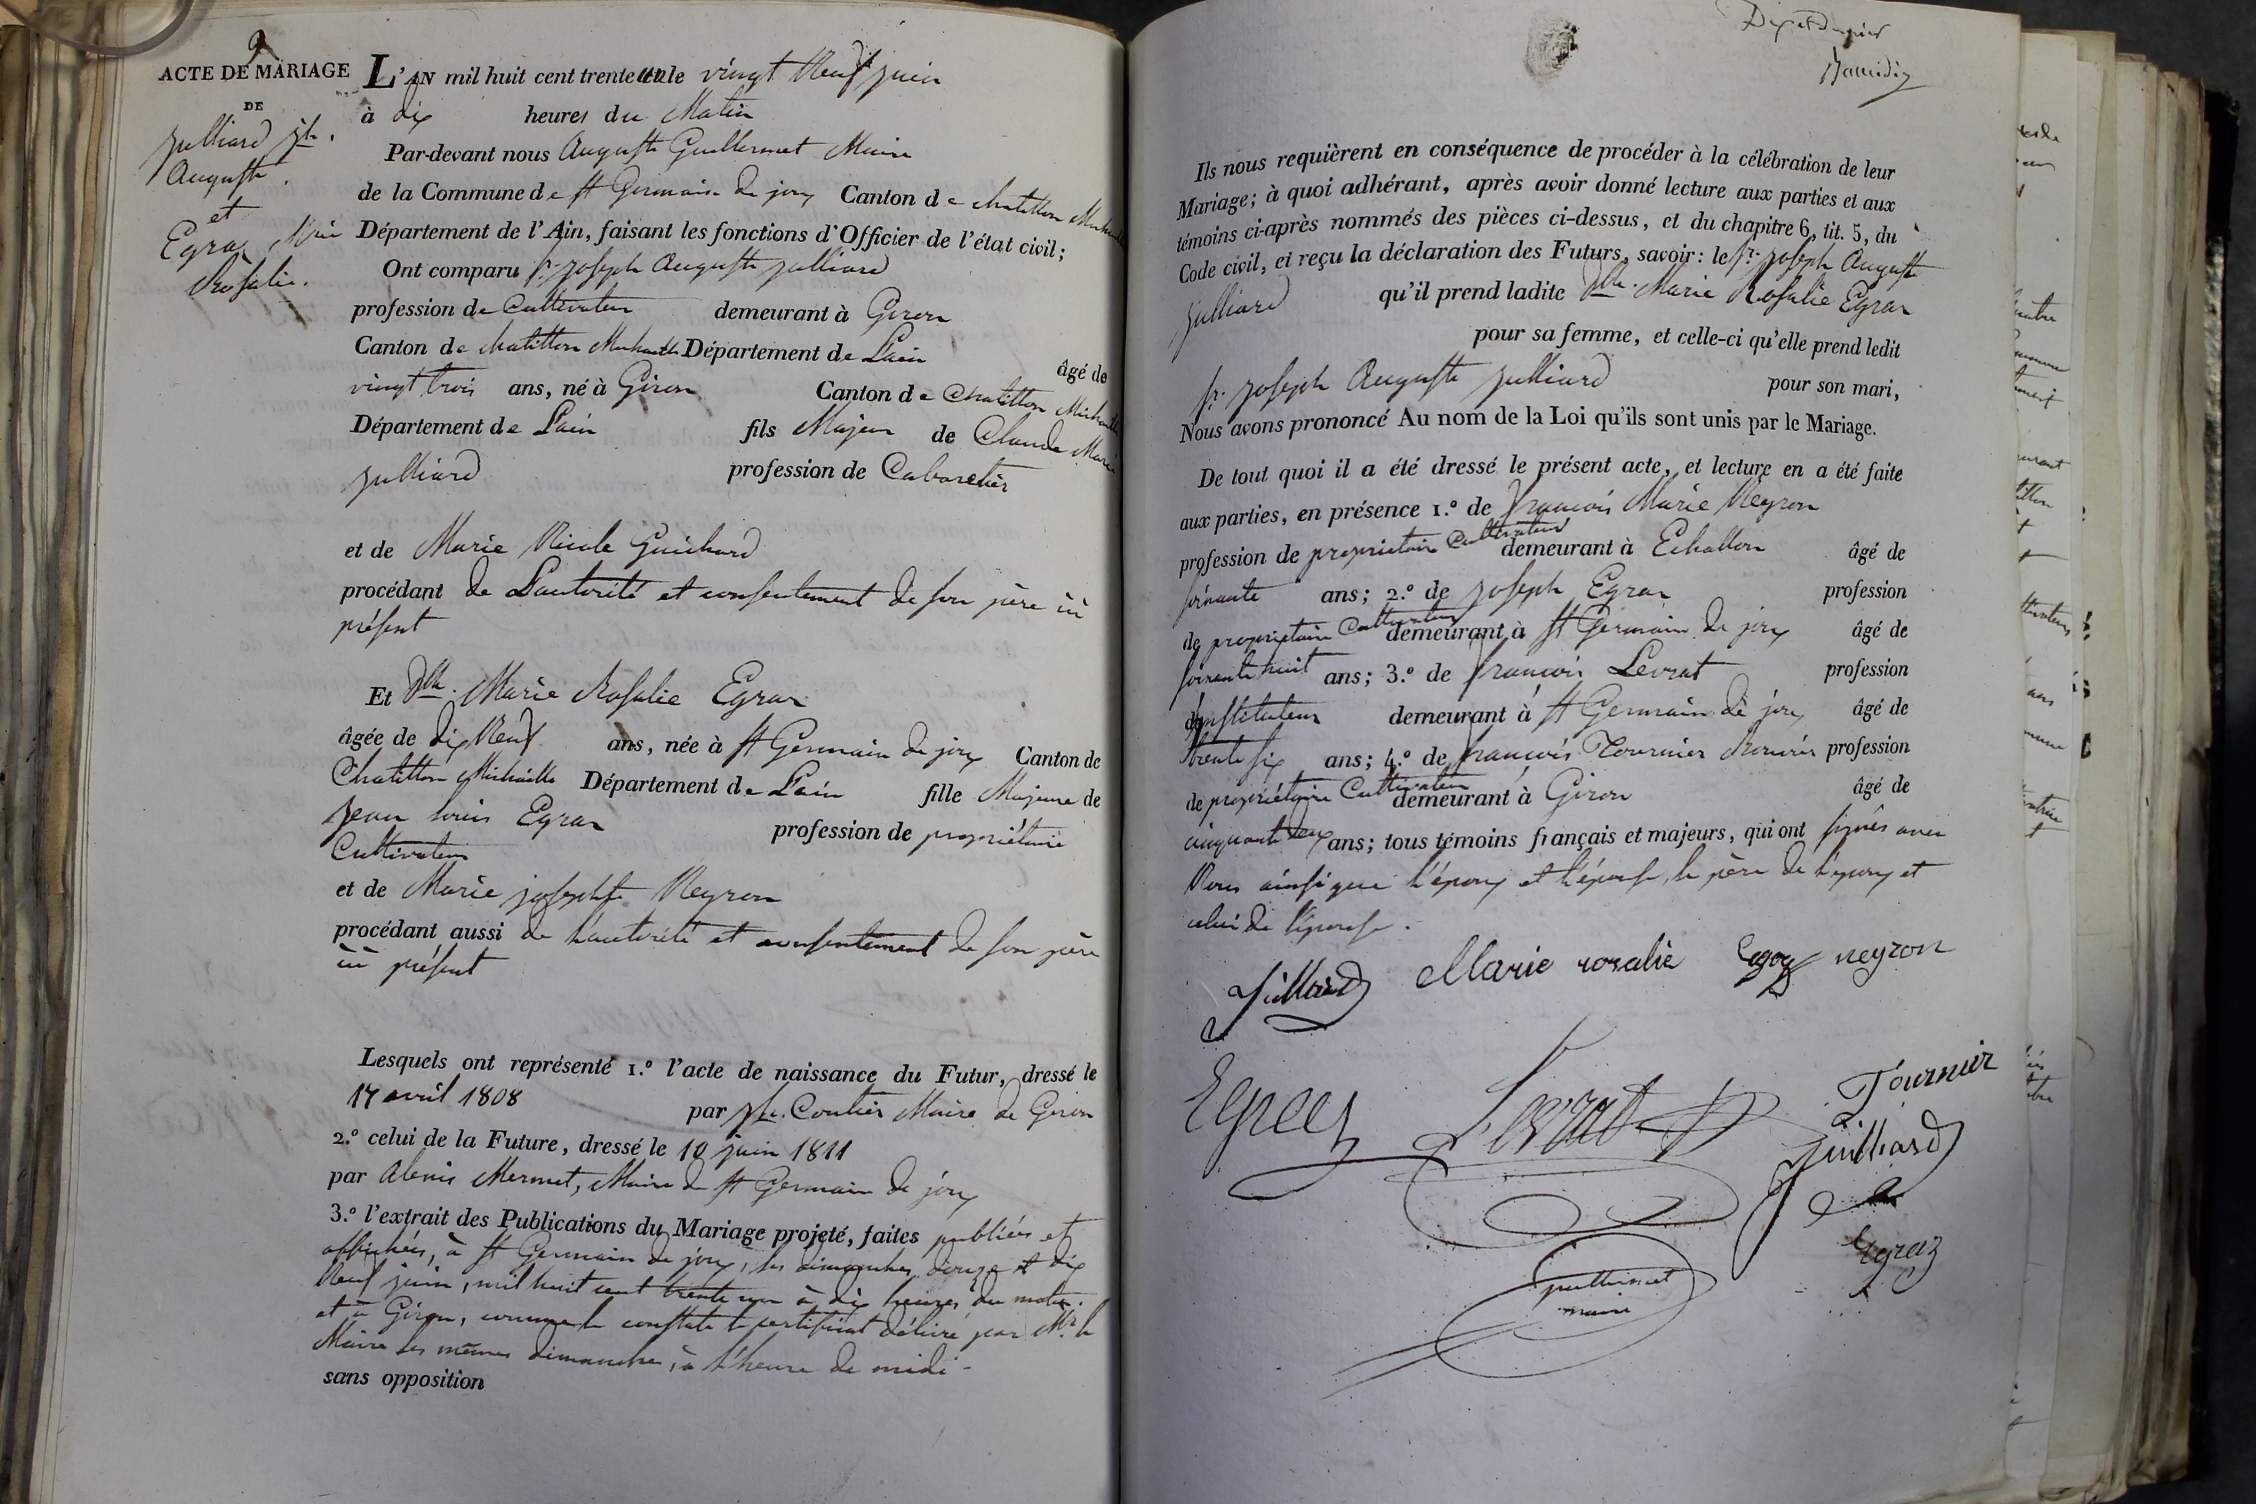 9
ACTE DE MARIAGE
DE
Julliard Jph.
Auguste.
et
Egraz Marie
Rosalie.
L'AN mil huit cent trente un le vingt Neuf juin
à dix heures du Matin
Par-devant nous Auguste Guillermet Maire
de la Commune de St Germain de joux Canton de chatillon Michaille
Département de l'Ain, faisant les fonctions d'Officier de l'état civil;
Ont comparu Sr. joseph Auguste julliard
profession de Cultivateur demeurant à Giron
Canton de chatillon Michaille Département de L'ain âgé de
vingt trois ans, né à Giron Canton de Chatillon Michaille
Département de L'ain fils Majeur de Claude Marie
julliard profession de Cabaretier
et de Marie Nicole Guichard
procédant de L'autorité et consentement de son père ici
présent
Et Dlle. Marie Rosalie Egraz
âgée de dix Neuf ans, née à St Germain de joux Canton de
Chatillon Michaille Département de L'ain fille Majeure de
jean louis Egraz profession de propriétaire
Cultivateur
et de Marie josephte Neyron
procédant aussi de L'autorité et consentement de son père
ici présent
Lesquels ont représenté 1.° l'acte de naissance du Futur, dressé le
17 avril 1808 par Coutier Maire de Giron
2.° celui de la Future, dressé le 10 juin 1811
par Alexis Mermet, Maire de St Germain de joux
3.° l'extrait des Publications du Mariage projeté, faites publiées et
affichées, à St Germain de joux, les dimanches douze et dix
Neuf juin, mil huit cent trente un à dix heures du matin.
et à Giron, comme le constate le certificat délivré par Mr. le
Maire les mêmes dimanches, à l'heure de midi -
sans opposition
Ils nous requièrent en conséquence de procéder à la célébration de leur
Mariage; à quoi adhérant, après avoir donné lecture aux parties et aux
témoins ci-après nommés des pièces ci-dessus, et du chapitre 6, tit. 5, du
Code civil, et reçu la déclaration des Futurs, savoir: le Sr. joseph Auguste
julliard qu'il prend ladite Dlle. Marie Rosalie Egraz
pour sa femme, et celle-ci qu'elle prend ledit
Sr. joseph Auguste julliard pour son mari,
Nous avons prononcé Au nom de la Loi qu'ils sont unis par le Mariage.
De tout quoi il a été dressé le présent acte, et lecture en a été faite
aux parties, en présence 1.° de françois Marie Neyron
profession de propriétaire Cultivateur demeurant à Echallon âgé de
soixante ans; 2.° de joseph Egraz profession
de propriétaire Cultivateur demeurant à St Germain de joux âgé de
soixante huit ans; 3.° de françois Levrat profession
d'instituteur demeurant à St Germain de joux âgé de
trente six ans; 4.° de françois Tournier profession
de propriétaire Cultivateur demeurant à Giron âgé de
cinquante deux ans; tous témoins français et majeurs, qui ont signés avec
Nous ainsi que l'époux et l'épouse, le père de l'époux et
celui de l'épouse.
Julliard Marie rosalie Egraz neyron
Egraz Levrat Tournier
Juilliard
Egraz
guillermet
maire